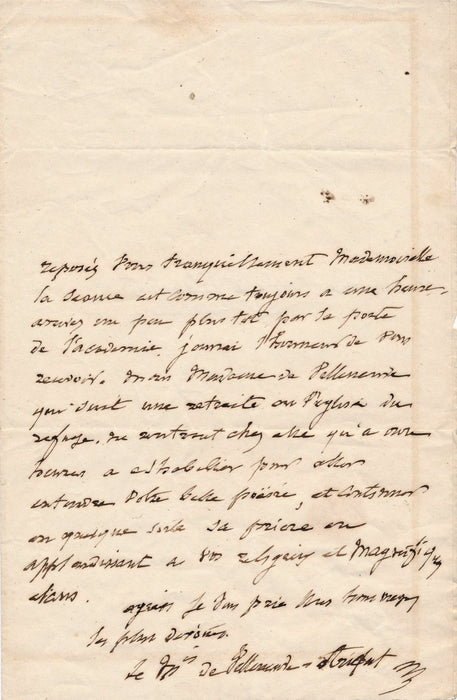 reposés vous tranquillement Mademoiselle
la séance est comme toujours a une heure.
arrivez un peu plus tôt par la porte
de l'académie. j'aurai l'honneur de vous
recevoir. mais Madame de
qui suit une retraite a l'église du
refuge. ne rentrant chez elle qu'a onze
heures a s'habiller pour aller
entendre votre belle poësie, et continuer
en quelque sorte sa prière en
applaudissant a vos religieux et magnifiques
élans.
agréez je vous prie mes hommages
les plus dévoués.
le Mis de